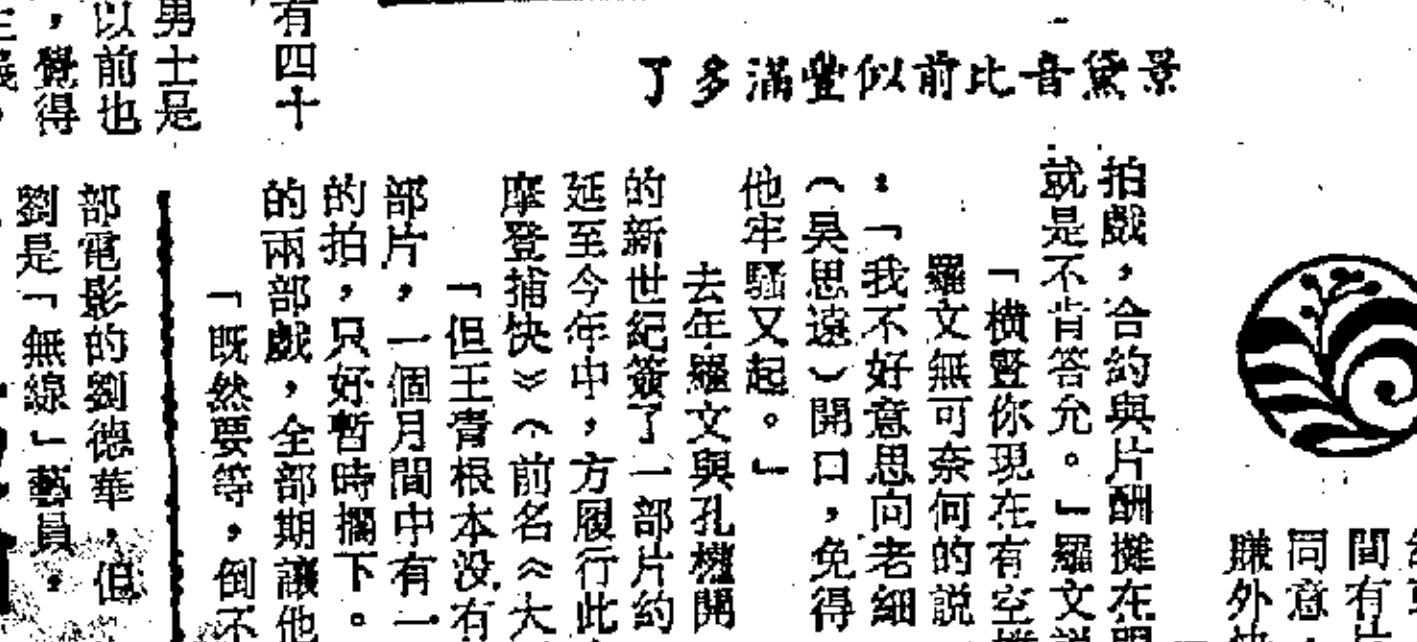 景黛音比前似豐滿多了
間有
同意
賺外快
拍戲，合約與片酬攤在
就是不肯答允。」羅文説
「橫豎你現在有空檔
羅文無可奈何的説
：「我不好意思向老細
（吳思遠）開口，免得
他牢騷又起。」
去年羅文與孔權開
的新世紀簽了一部片約
延至今年中，方履行此
摩登捕快》（前名《大
「但王青根本没有
部片，一個月間中有一
的拍，只好暫時擱下。
的兩部戲，全部期讓他
「既然要等，倒不
有四十
男士是
以前也
，覺得
部電影的劉德華，但
劉是「無線」藝員，